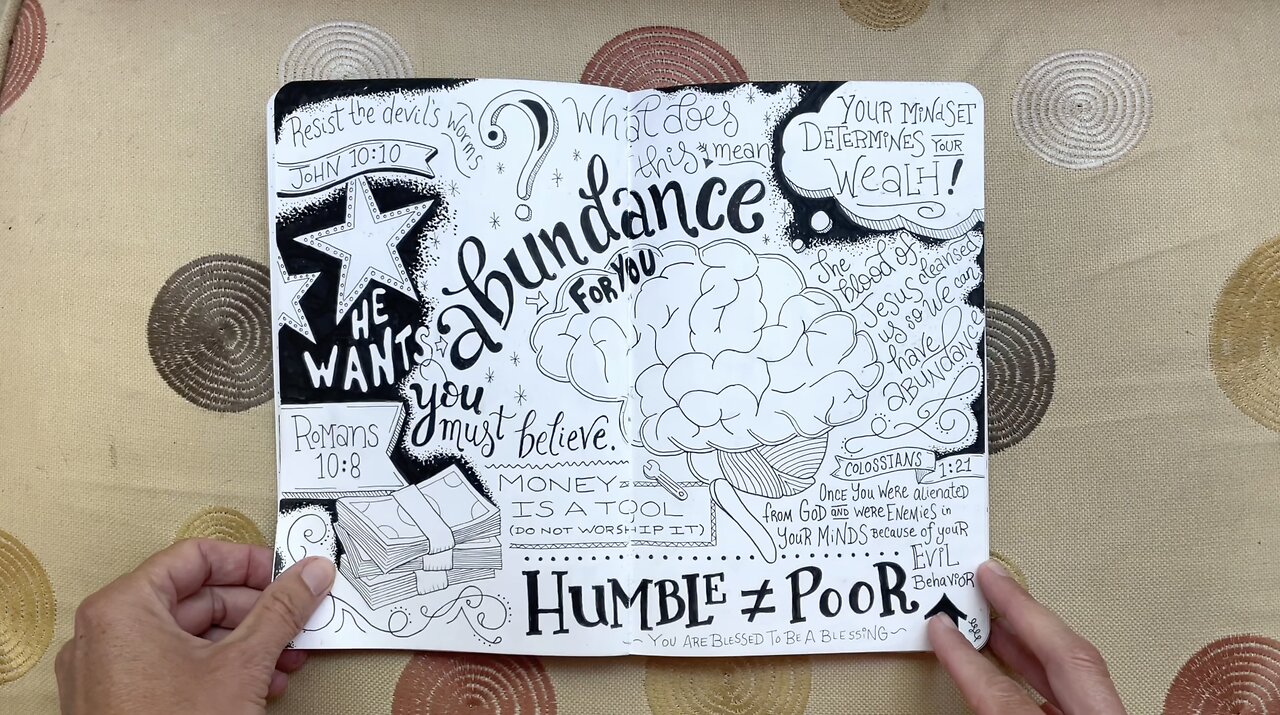 Resist the devil's worms
JOHN 10:10
What does
this mean
YOUR MiNdSET
DETERMINES YOUR
WeaLH!
abundance
FOR YOU
HE
WANTS
you
must believe.
The
blood of
Jesus cleansed
us so we can
have
abundance
ROMANS
10:8
MONEY
IS A TOOL
(DO NOT WORSHIP IT)
COLOSSIANS 1:21
ONCE YOU WERE alienated
from GOD AND WERE ENEMiES in
YOUR MiNDS BECAUSE OF YOUR
EViL
BEHAVIOR
HUMBLE ≠ POOR
~ YOU ARE BLESSED TO BE A BLESSING ~